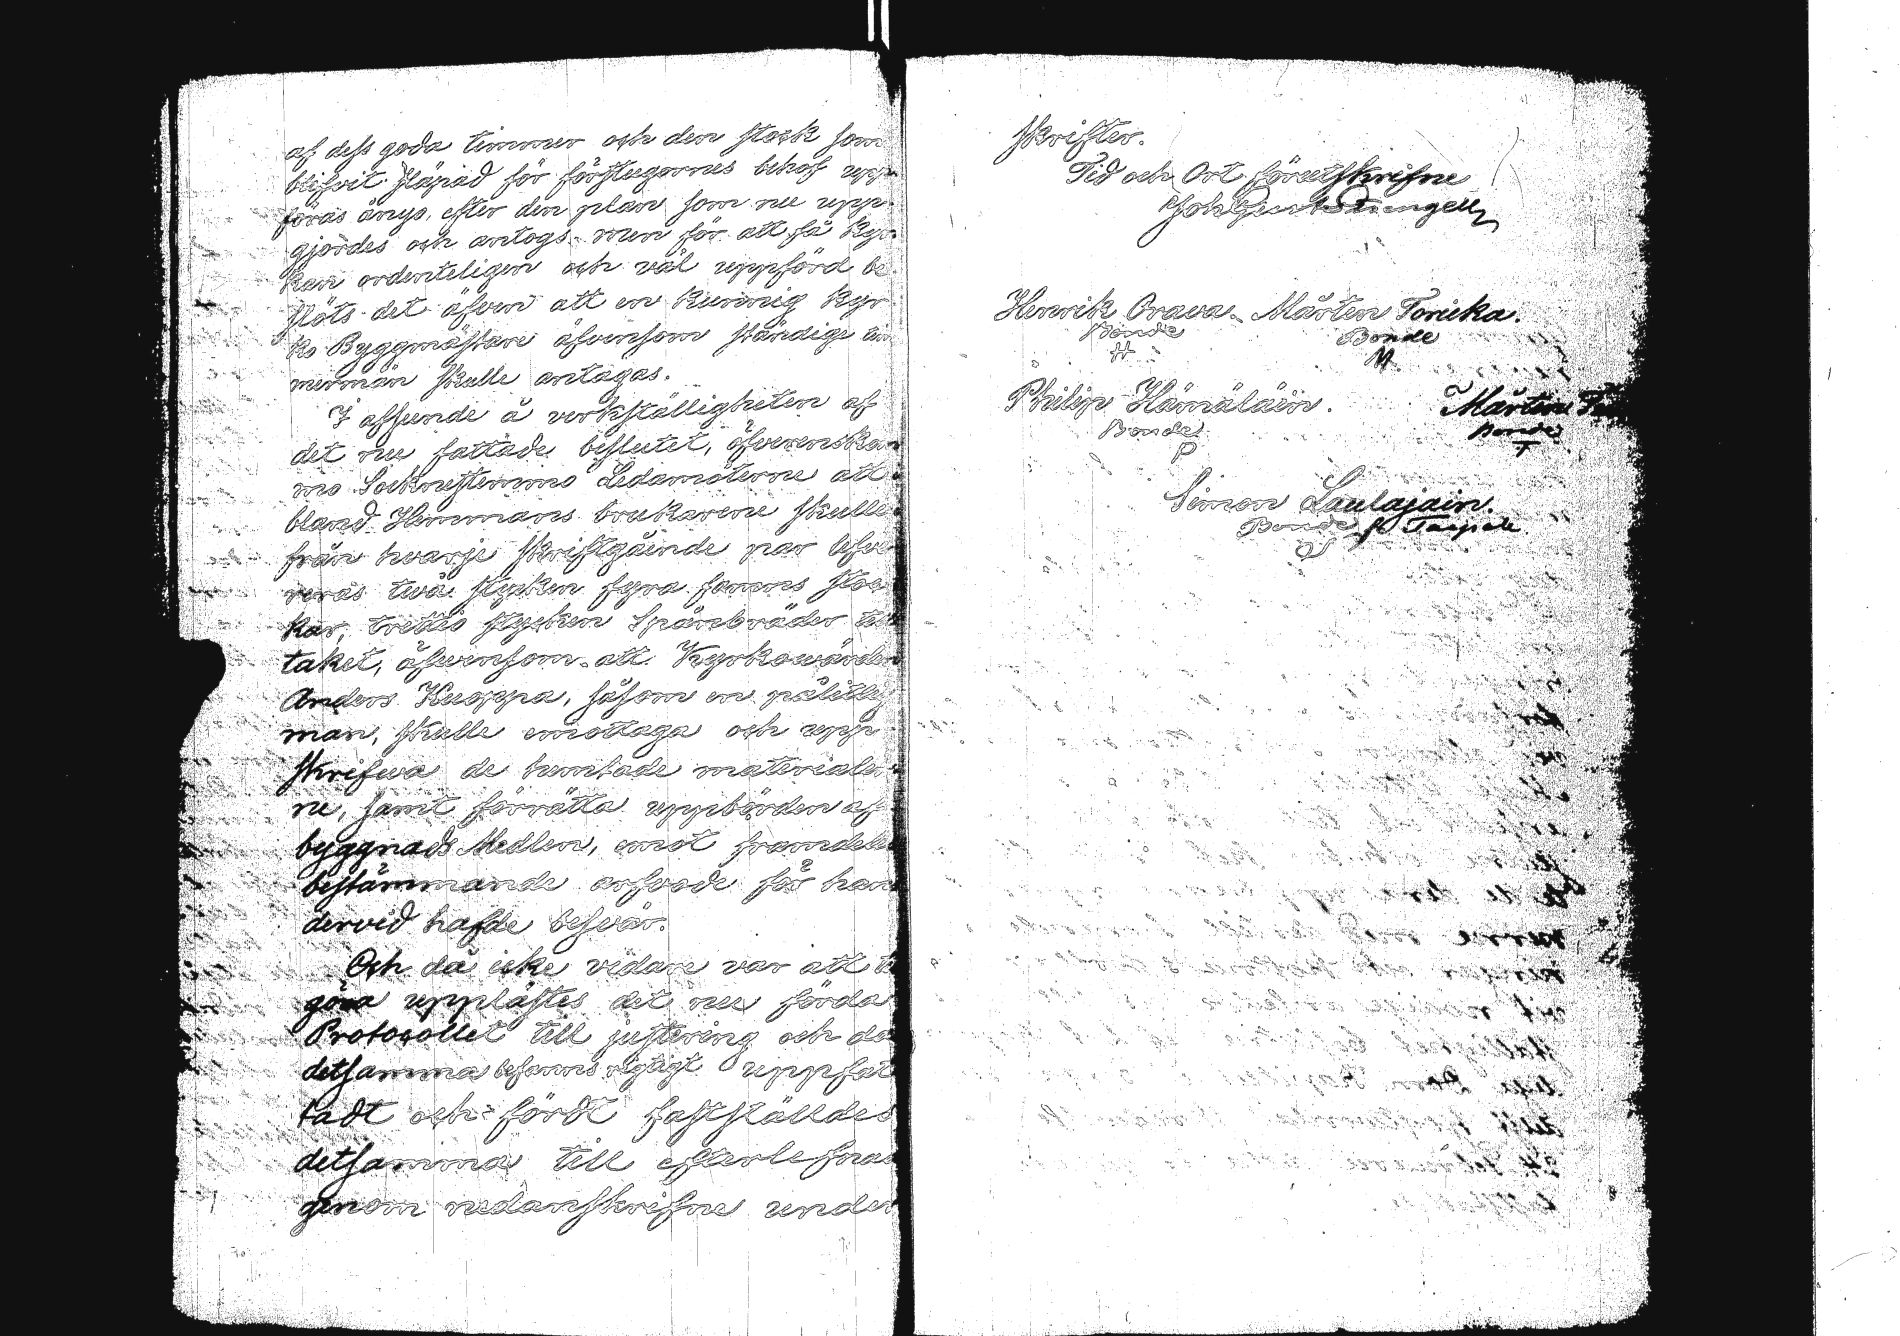 af dess goda timmer och den stock som
blifvit släpad för förstugornes behof upp-
föras ånyo, efter den plan som nu upp-
gjordes och antogs. men för att få Kyr-
kan ordenteligen och väl uppförd be-
slöts det äfven att en kunnig kyr
ko Byggmästare äfvensom ständige tim
mermän skulle antagas.
I afseende å verkställigheten af
det nu fattade beslutet, öfverenskom
mo Socknestemmo Ledamöterne att
bland Hemmans brukarene skulle
från hvarje skriftgående par lefve
reras två stycken fyra famns stoc
kar, trettio stycken Spånbräder till
taket, äfvensom att Kyrkowärden
Anders Kuoppa, såsom en pålitlig
man, skulle emottaga och upp
skrifva de hemtade materialer
ne, samt förrätta uppbörden af
byggnads Medlen, emot framdeles
bestämmande arfvode för hans
dervid hafde besvär.
Och då icke vidare var att til
göra upplästes det nu förda
Protocollet till justering och då
detsamma befanns rigtigt uppfat
tadt och fördt fastställdes
detsamma till efterlefnad
genom nedanskrifne under
skrifter.
Tid och Ort förutskrifne
Joh Gust
Henrik Orava. Mårten Toricka.
Bonde Bonde
Philip Hämäläin. Mårten
Bonde Bonde
Simon Laulajain.
Bonde